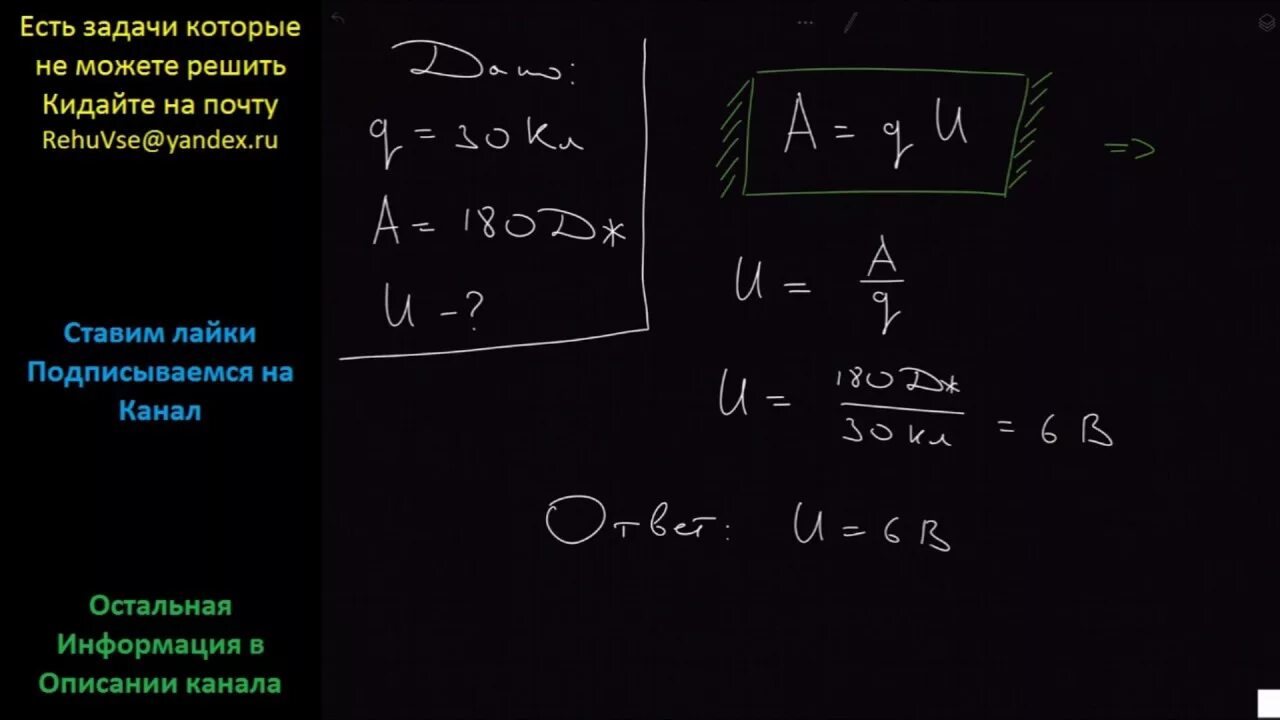 Есть задачи которые
не можете решить
Кидайте на почту
RehuVse@yandex.ru
Ставим лайки
Подписываемся на
Канал
Остальная
Информация в
Описании канала
Дано:
q = 30 Кл
A = 180 Дж
U - ?
A = q U =>
U = A/q
U = 180 Дж/30 кл = 6 В
Ответ: U = 6 В